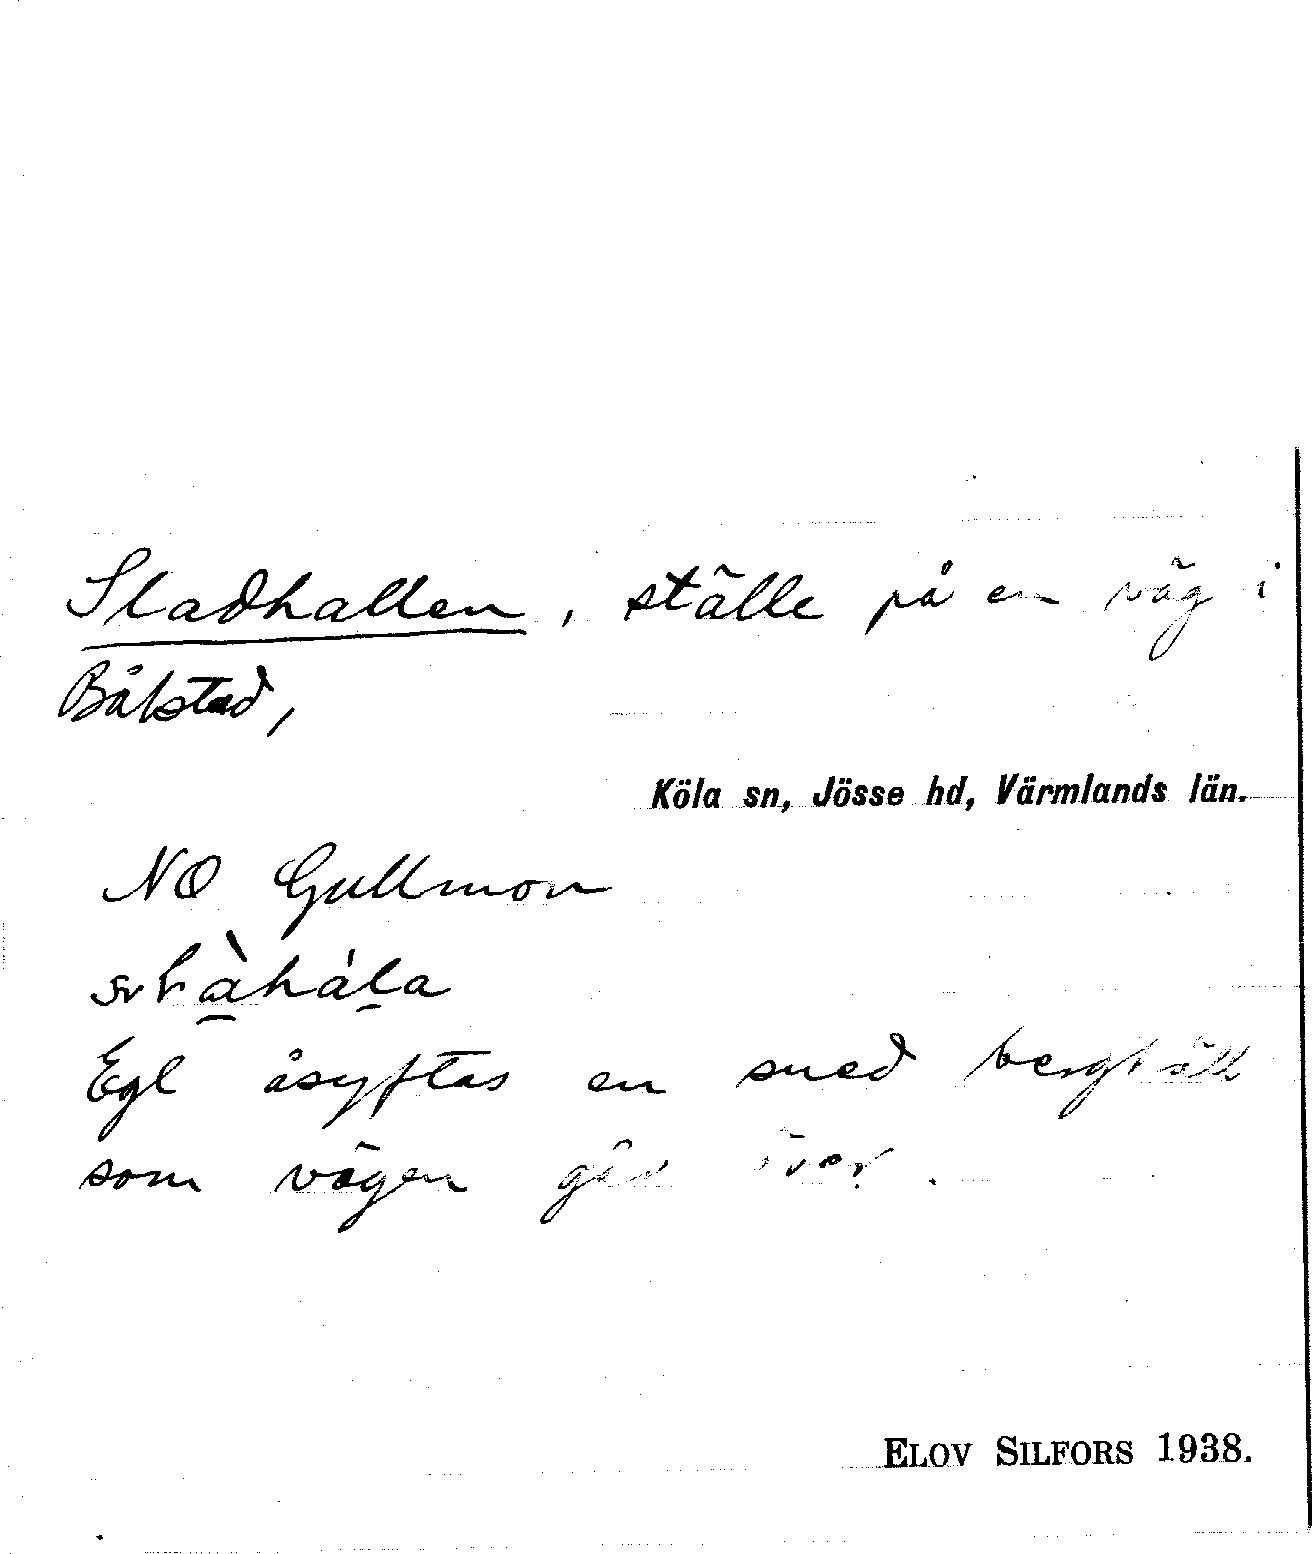 Sladhallen, ställe på en väg i
Bålstad,
Köla sn, Jösse hd, Värmlands län.
NO Gullmon
Egl åsyftas en sned berghäll
som vägen går över.
ELOV SILFORS 1938.